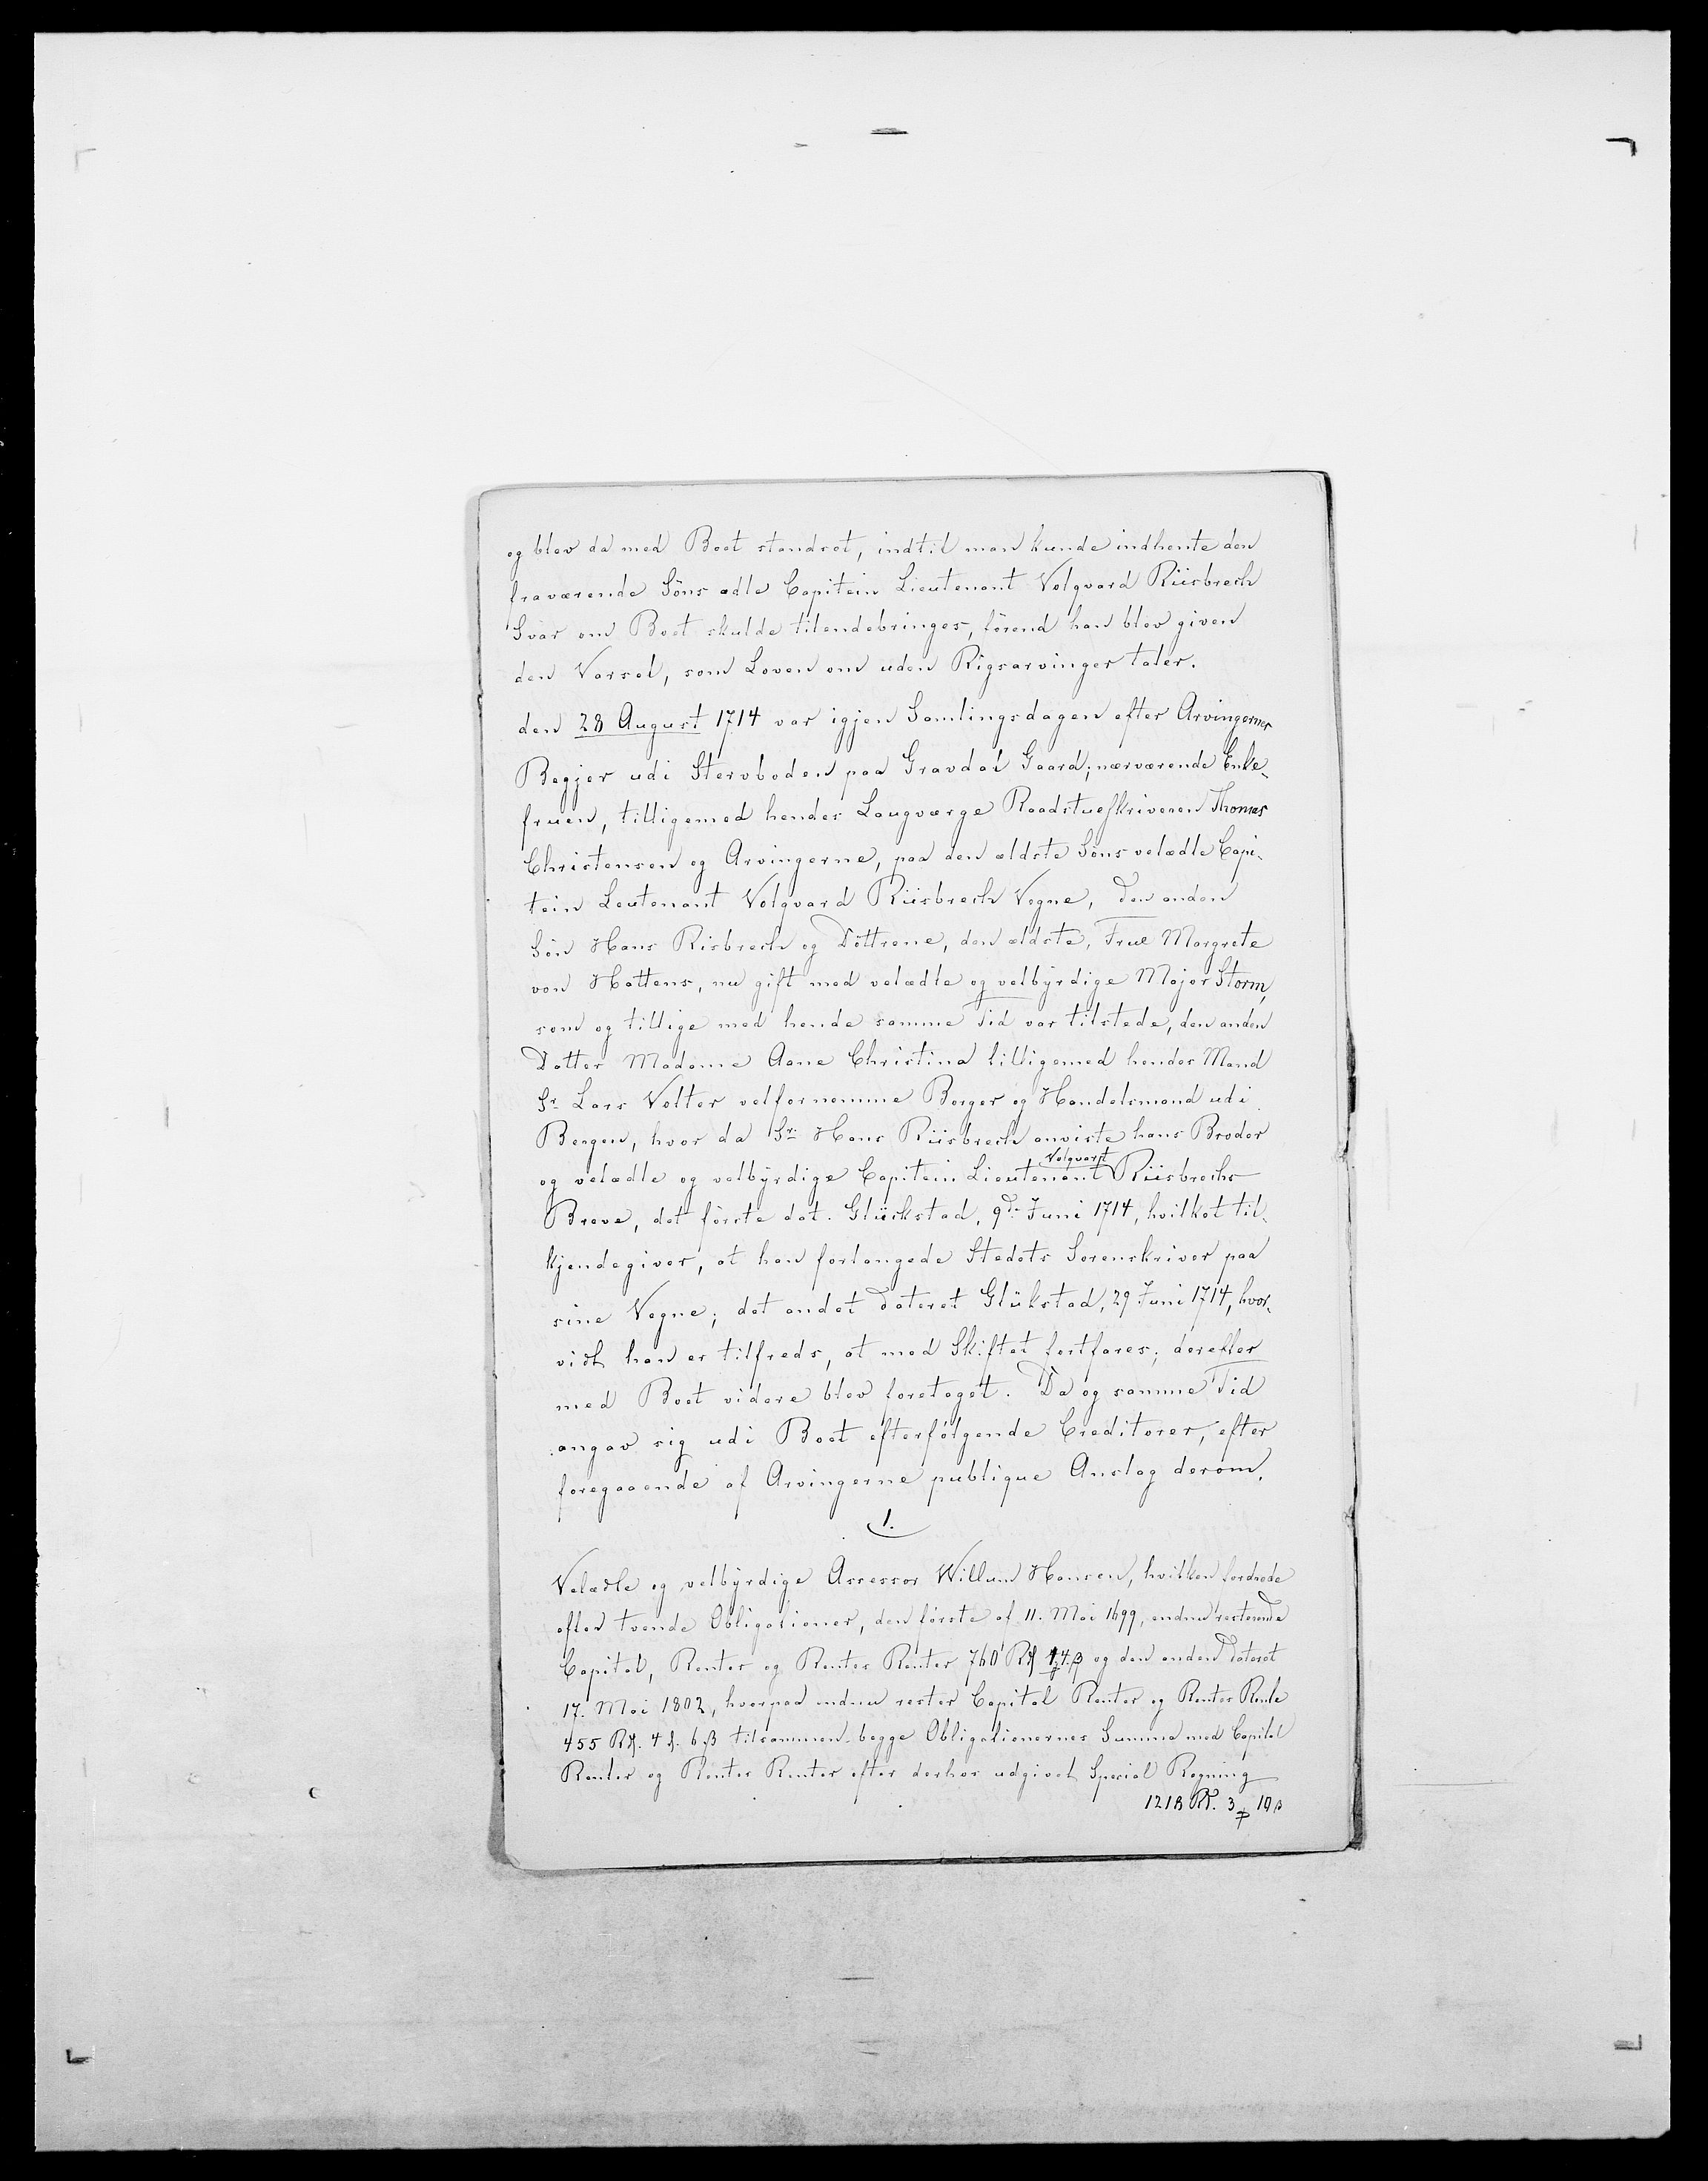 og blev da med Boet standset, indtil man kunde indhente den
fraværende Söns ædle Capitein Lieutenant Volqvard Riisbrech
Svar om Boet skulde tilendebringes, förend han blev given
den Varsel, som Loven om uden Rigsarvinger taler.
den 28 August 1714 var igjen Samlingsdagen efter Arvingernes
Begjer udi Stervboden paa Gravdal Gaard; nærværende Enke-
fruen, tilligemed hendes Laugværge Raadstueskriveren Thomas
Christensen og Arvingerne, paa den ældste Söns velædle Capi-
tein Leutenant Volqvard Riisbrech Vegne, den anden
Sön Hans Risbrech og Döttrene, den ældste, Frue Margrete
von Hattens, nu gift med velædle og velbyrdige Major Storm,
som og tillige med hende samme Tid var tilstede, den anden
Datter Madame Aane Christina tilligemed hendes Mand
Sr. Lars Vetter velfornemme Borger og Handelsmand udi
Bergen, hvor da Sr. Hans Riisbrech anviste hans Broder
Volqvart
og velædle og velbyrdige Capitein Lieutenant Riisbrechs
Breve, det förste dat. Glückstad, 9de Juni 1714, hvilket til-
kjendegiver, at han forlangede Stedets Sorenskriver paa
sine Vegne; det andet dateret Glükstad, 29 Juni 1714, hvor-
vidt han er tilfreds, at med Skiftet fortfares; derefter
med Boet videre blev foretaget. Da og samme Tid
angav sig udi Boet efterfölgende Creditorer, efter
foregaaende af Arvingerne publique Anslag derom.
1.
Velædle og velbyrdige Assessor Willum Hansen, hvilken fordrede
efter tvende Obligationer, den förste af 11. Mai 1699, endnu resterende
Capital, Renter og Renters Renter 760 Rd 4 ß og den anden dateret
17. Mai 1802, hvorpaa endnu rester Capital Renter og Renters Rente
455 Rd. 4 . 6 ß tilsammen begge Obligationernes Summa med Capital
Renter og Renters Renter efter derhos udgivet Special Regning
1218 Rd. 3 10 ß